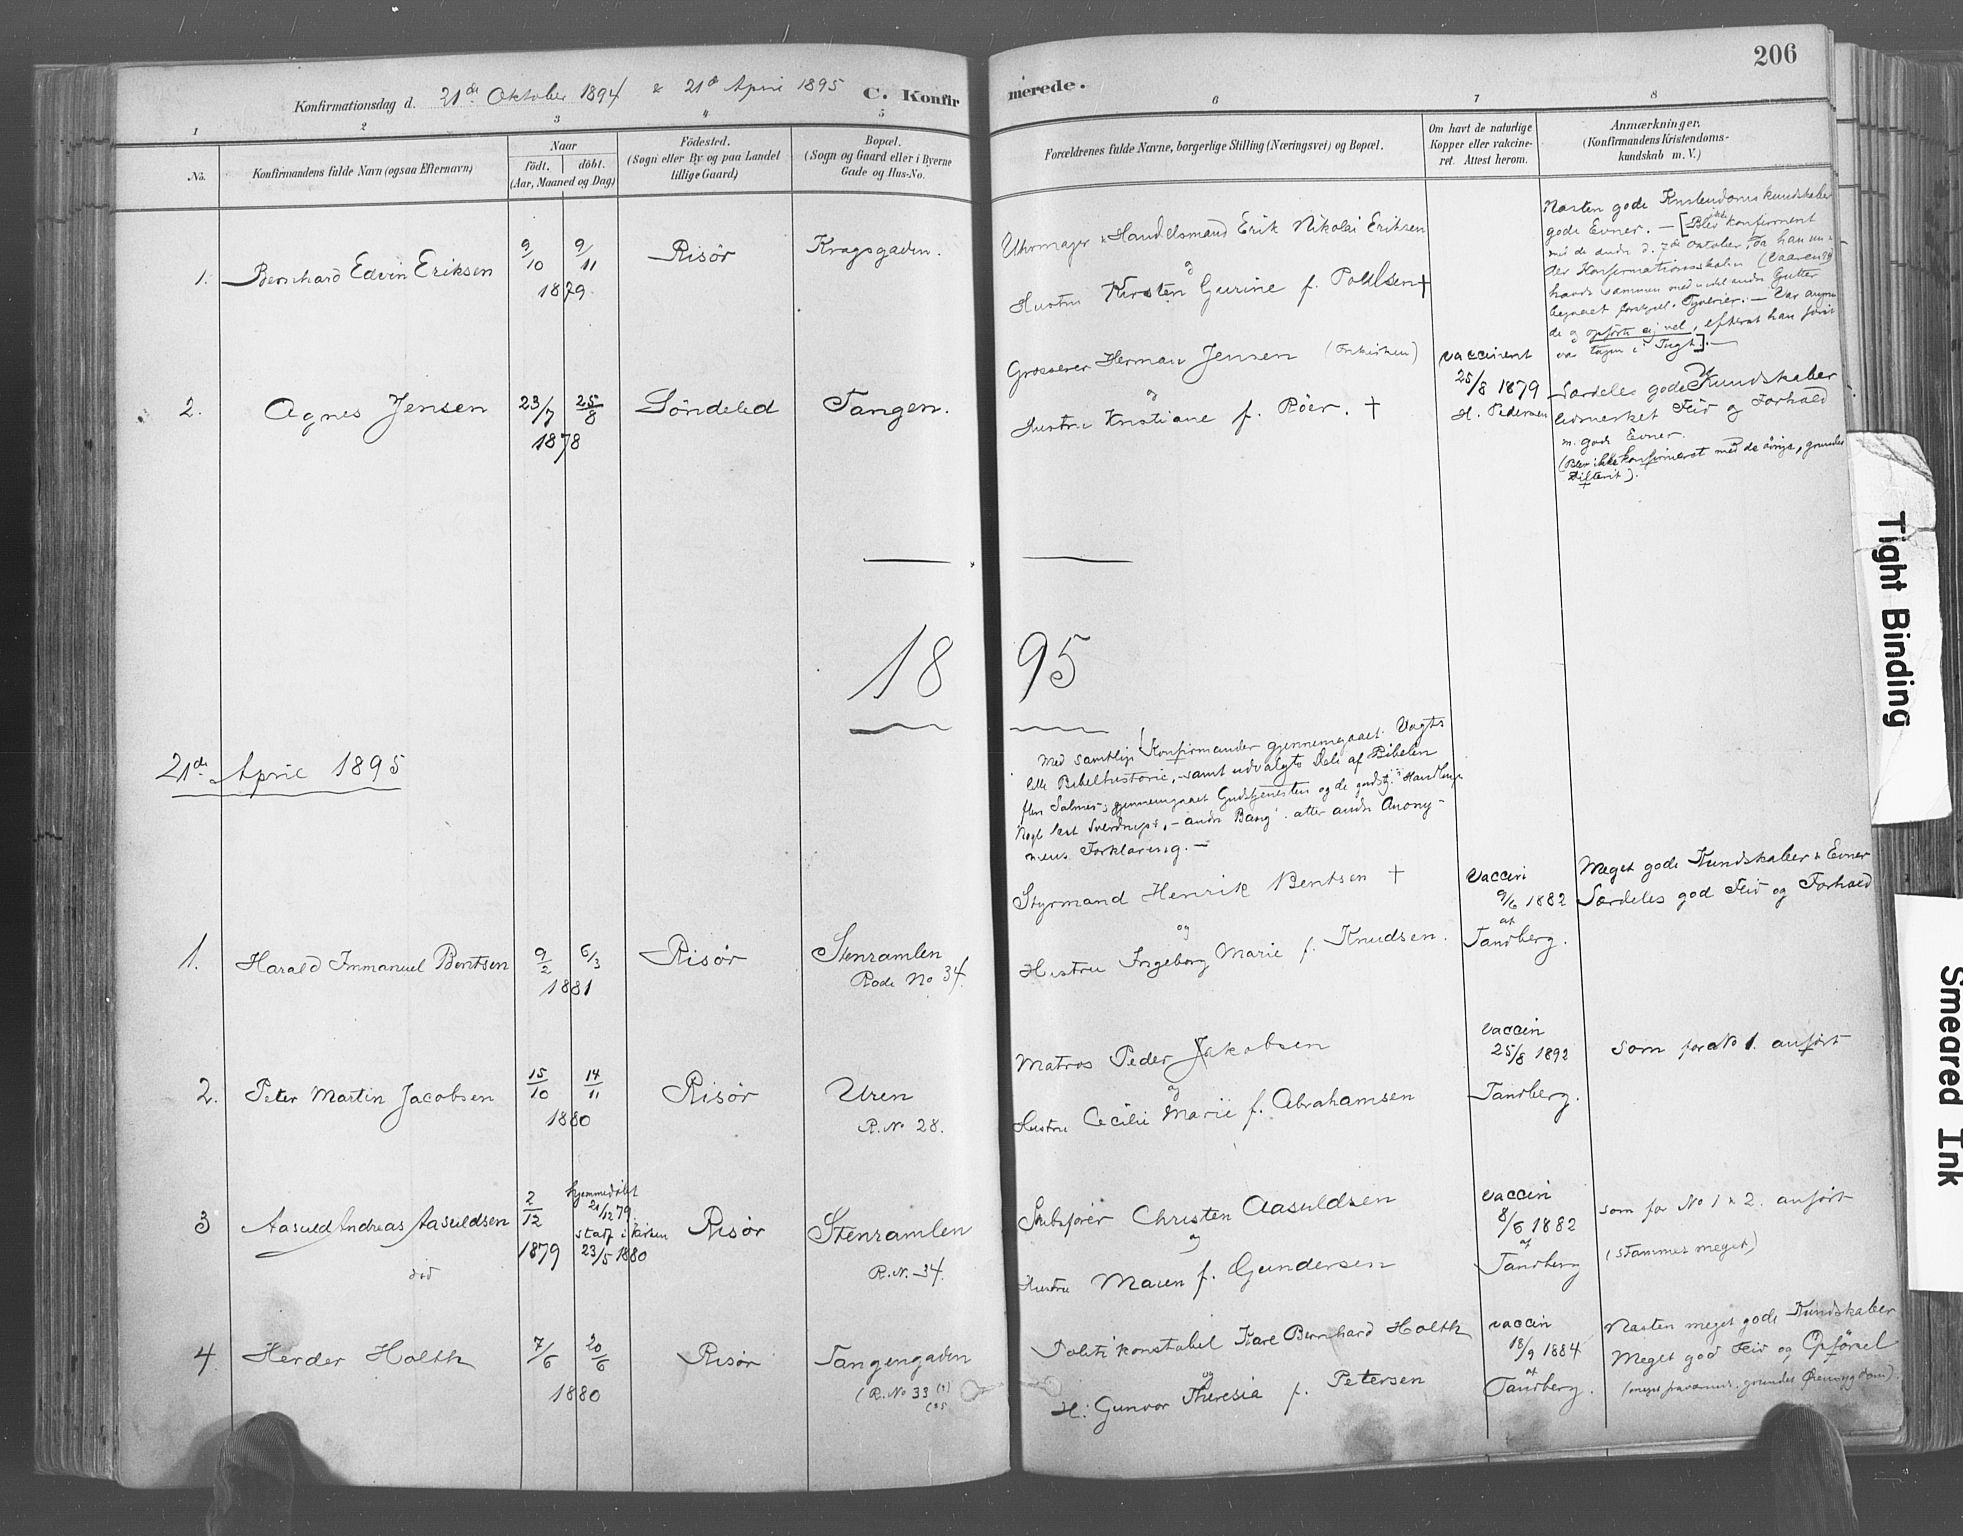 206
Konfirmationsdag d. 21de Oktober 1894 & 21de April 1895 C. Konfir
merede.
1 2 3 4 5
6 7 8
No.
Konfirmandens fulde Navn (ogsaa Efternavn)
Naar
født. døbt.
(Aar, Maaned og Dag)
Fødested.
(Sogn eller By og paa Landet
tillige Gaard)
Bopæl.
(Sogn og Gaard eller i Byerne
Gade og Hus-No.
Forældrenes fulde Navne, borgerlige Stilling (Næringsvei) og Bopæl.
Om havt de naturlige
Kopper eller vakcine-
ret. Attest herom.
Anmærkninger.
(Konfirmandens Kristendoms-
kundskab m. V.)
1. Bernhard Edvin Eriksen
9/10 9/11
1879
Risør
Kragsgaden.
Uhrmager & Handelsmand Erik Nikolai Eriksen
og
Hustru Kirsten Gurine f. Pohlsen †
Næsten gode Kristendomskundskaber
gode Evner. — [Blev ikke konfirmeret
med de andre d. 7de Oktober, da han un-
der Konfirmationsskolen
havde sammen med andre Gutter
begaaet Tyverier. — Var
og opførte sig vel, efterat han først
var tagen i Tugt]. —
2. Agnes Jensen
23/7 25/8
1878
Søndeled
Tangen.
Grosserer Herman Jensen
og
Hustru Kristiane f. Röer. †
vaccineret
25/8 1879
H. Pedersen
Særdeles gode Kundskaber
udmerket Flid og Forhold
m. gode Evner.
(Blev ikke konfirmeret med de øvrige, grundet
Difterit).
18 95
21de April 1895
Med samtlige Konfirmander gjennemgaaet Vogts
lille Bibelhistorie, samt udvalgte Dele af Bibelen
flere Salmer; gjennemgaaet Gudstjenesten og de gudstj. Handlinger
Nogle læst Sverdrups, — andre Bang' atter andre Anony-
mens Forklaring. —
1. Harald Immanuel Bentsen
9/2 6/3
1881
Risør
Stenramlen
Rode No 34.
Styrmand Henrik Bentsen †
og
Hustru Ingeborg Marie f. Knudsen.
vaccin
9/6 1882
af
Tandberg.
Meget gode Kundskaber & Evner
Særdeles god Flid og Forhold
2. Peter Martin Jacobsen
15/10 14/11
1880
Risør
Uren
R. No 28.
Matros Peder Jakobsen
og
Hustru Cecilie Marie f. Abrahamsen
vaccin
25/8 1892
Tandberg.
som for No 1. anført
3 Aasuld Andreas Aasuldsen
død
2/12
1879
hjemmedøbt
21/12 79
stadf i Kirken
23/5 1880
Risør
Stenramlen
R. N. 34.
Skibsfører Christen Aasuldsen
og
Hustru Maren f. Gundersen
vaccin
8/6 1882
af
Tandberg
som for No 1 & 2. anført
(stammer meget)
4 Herder Holth
7/6 20/6
1880
Risør
Tangengaden
(R. No 33
Politikonstabel Karl Bernhard Holth
og
H: Gunvor Theresia f. Petersen
vaccin
18/9 1884
af
Tandberg.
Næsten meget gode Kundskaber
Meget god Flid og Opførsel
(meget fraværende grundet Øiensygdom).
Tight Binding
Smeared Ink